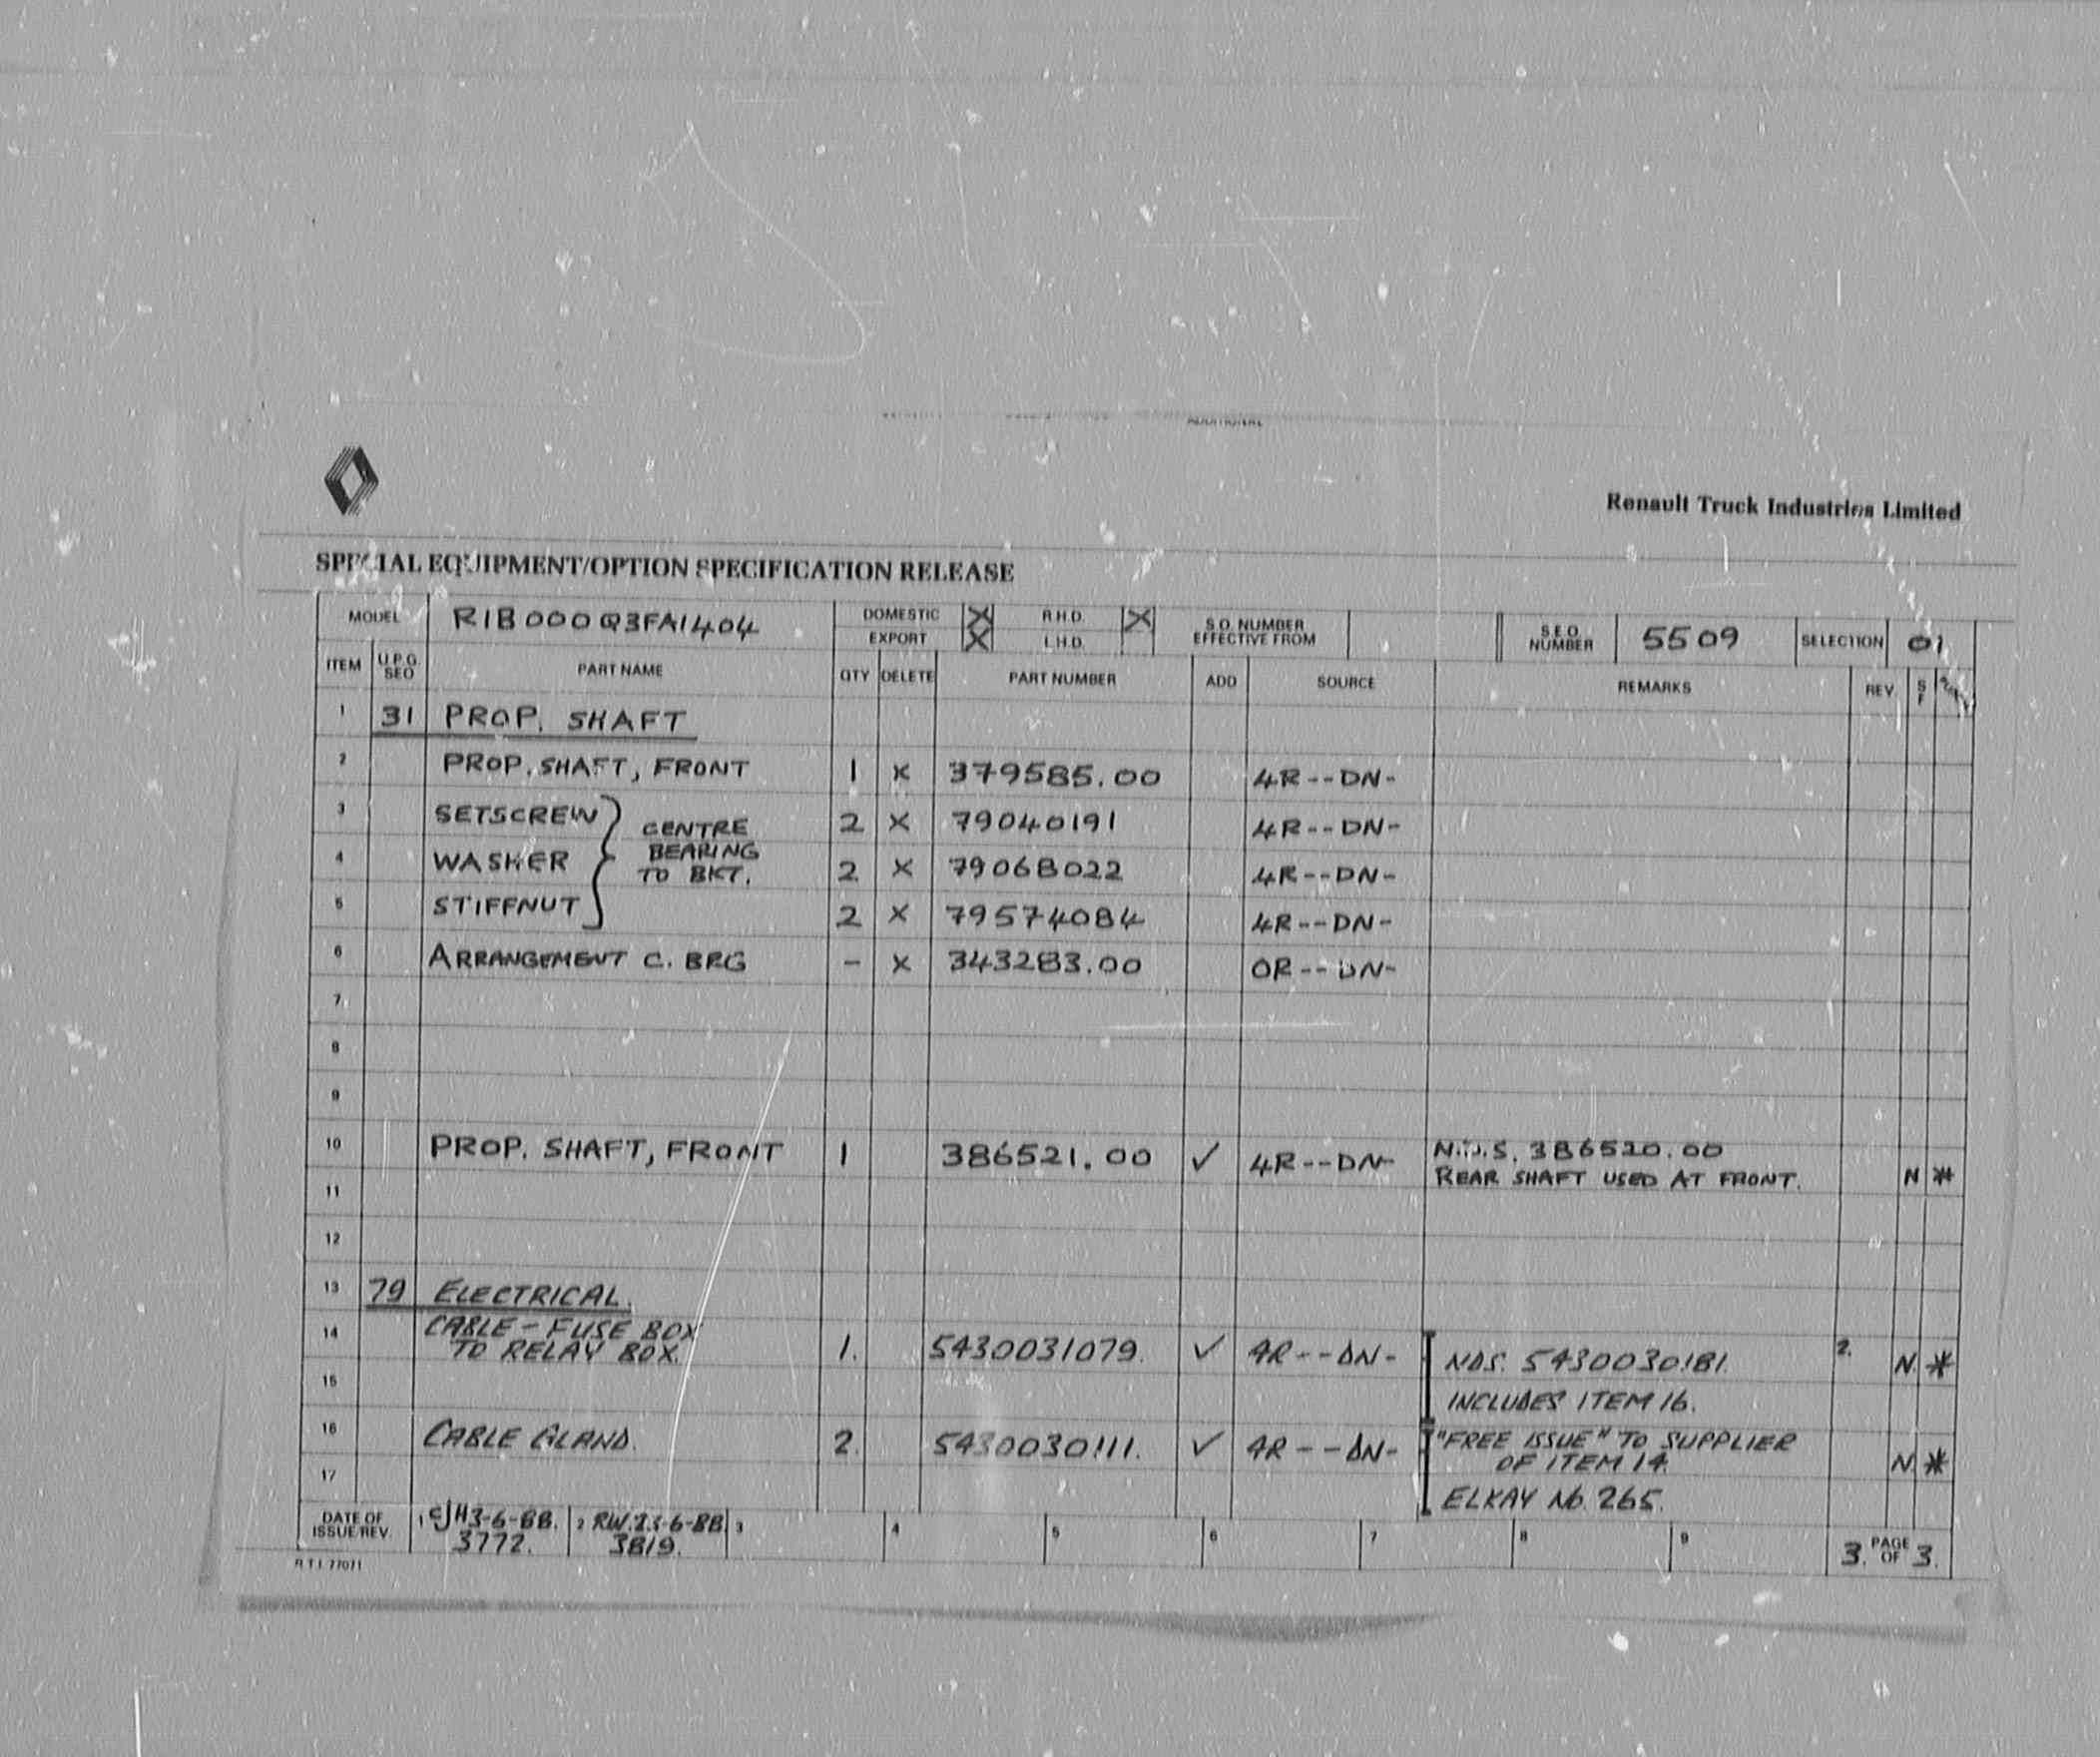 ADDITIONAL
Renault Truck Industries Limited
SPECIAL EQUIPMENT/OPTION SPECIFICATION RELEASE
MODEL R1B000Q3FA1404 DOMESTIC X R.H.D. X S.O. NUMBER EFFECTIVE FROM S.E.O. NUMBER 5509 SELECTION 01
EXPORT X L.H.D.
ITEM U.P.G. SEO PART NAME QTY DELETE PART NUMBER ADD SOURCE REMARKS REV S F
1 31 PROP. SHAFT
2 PROP. SHAFT, FRONT 1 X 379585.00 4R--DN-
3 SETSCREW 2 X 79040191 4R--DN-
CENTRE BEARING TO BKT.
4 WASHER 2 X 79068022 4R--DN-
5 STIFFNUT 2 X 79574084 4R--DN-
6 ARRANGEMENT C. BRG - X 343283.00 0R--DN-
7
8
9
10 PROP. SHAFT, FRONT 1 386521.00 ✓ 4R--DN- N.D.S. 386520.00
11 REAR SHAFT USED AT FRONT. N *
12
13 79 ELECTRICAL.
14 CABLE - FUSE BOX TO RELAY BOX. 1. 5430031079. ✓ 4R--DN- NDS. 5430030181. 2. N. *
15 INCLUDES ITEM 16.
16 CABLE GLAND. 2. 5430030111. ✓ 4R--DN- "FREE ISSUE" TO SUPPLIER OF ITEM 14. N. *
17 ELKAY No. 265.
DATE OF ISSUE/REV. 1 CJH 3-6-88. 3772. 2 RW. 23-6-88 3819. 3 4 5 6 7 8 9 3. PAGE OF 3.
R.T.I. 77071